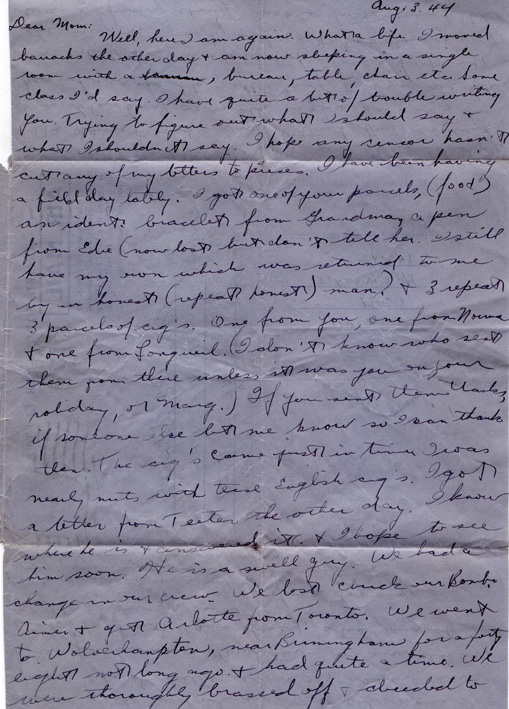 Aug. 3. 44
Dear Mom:
Well, here I am again. What a life. I moved
barracks the other day & am now sleeping in a single
room with a , bureau, table, chair etc. home
class I'd say. I have quite a bit of trouble writing
you. Trying to figure out what I should say &
what I shouldn't say. I hope any censor hasn't
cut any of my letters to pieces. I have been having
a field day lately. I got one of your parcels, (food)
an ident: bracelet from Grandma, a pen
from Edie (now lost but don't tell her. I still
have my own which was returned to me
by an honest (repeat honest) man) & 3 repeat
3 parcels of cig's. One from you, one from Norma
& one from Longueil. (I don't know who sent
them from there unless it was you on your
holiday, or Marg.) If you sent them thanks,
if someone else let me know so I can thank
them. The cig's came just in time I was
nearly nuts with these English cig's. I got
a letter from Tester the other day. I know
where he is & answered it. & I hope to see
him soon. He is a swell guy. We had a
change in our crew. We lost Chuck our Bomb
Aimer & got Arlotte from Toronto. We went
to Wolverhampton, near Birmingham for a forty
eight not long ago & had quite a time. We
were thoroughly brassed off & decided to